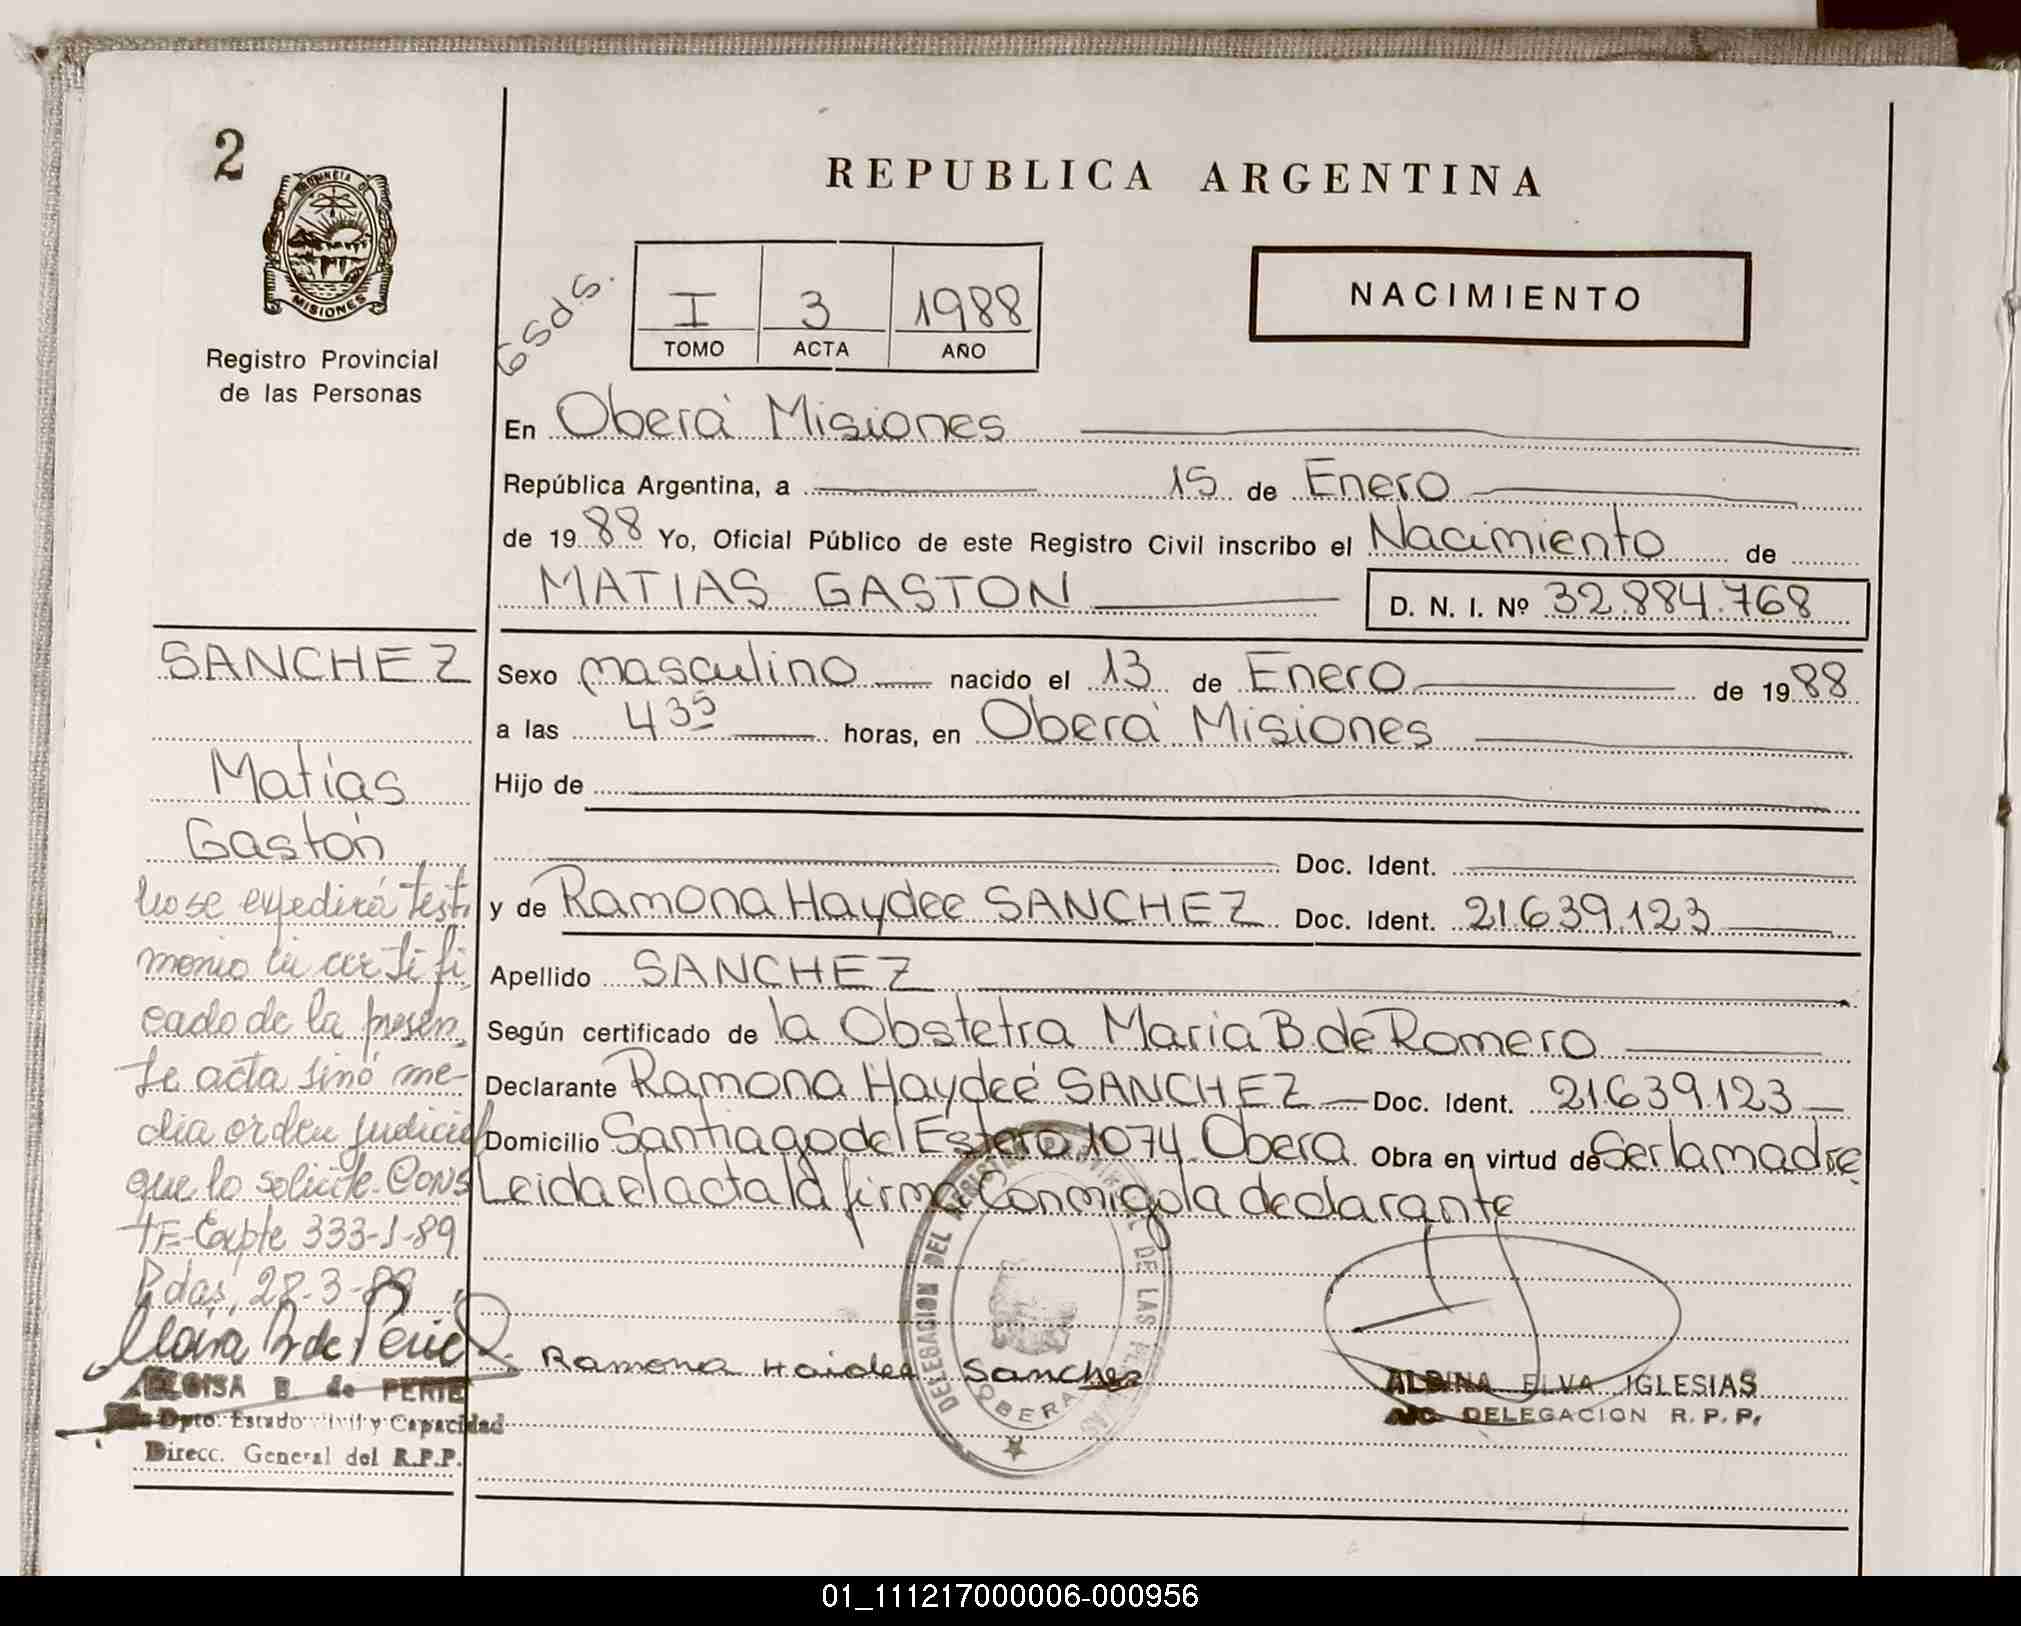 2
PROVINCIA DE
MISIONES
Registro Provincial
de las Personas
REPUBLICA ARGENTINA
I 3 1988
TOMO ACTA AÑO
NACIMIENTO
En Oberá Misiones
República Argentina, a 15 de Enero
de 1988 Yo, Oficial Público de este Registro Civil inscribo el Nacimiento de
MATIAS GASTON D. N. I. Nº 32.884.768
Sexo masculino nacido el 13 de Enero de 1988
a las 4 35 horas, en Oberá Misiones
Hijo de
Doc. Ident.
y de Ramona Haydee SANCHEZ Doc. Ident. 21.639.123
Apellido SANCHEZ
Según certificado de la Obstetra Maria B. de Romero
Declarante Ramona Haydeé SANCHEZ Doc. Ident. 21639.123
Domicilio Santiago del Estero 1074 Obera Obra en virtud de Ser la madre
Leida el acta la firma Conmigo la declarante
SANCHEZ
Matías
Gastón
No se expedirá testi
monio ni certifi
cado de la presen
te acta sinó me-
dia orden judicial
que lo solicite. CONS
TE-Expte 333-1-89
Pdas, 28-3-89
ELOISA B. de PERIE
Dpto. Estado Civil y Capacidad
Direcc. General del R.P.P.
Ramona Haidee Sanchez
DELEGACION DEL REGISTRO PROVINCIAL DE LAS PERSONAS
OBERA
ALBINA ELVA IGLESIAS
A/C. DELEGACION R. P. P.
01_111217000006-000956